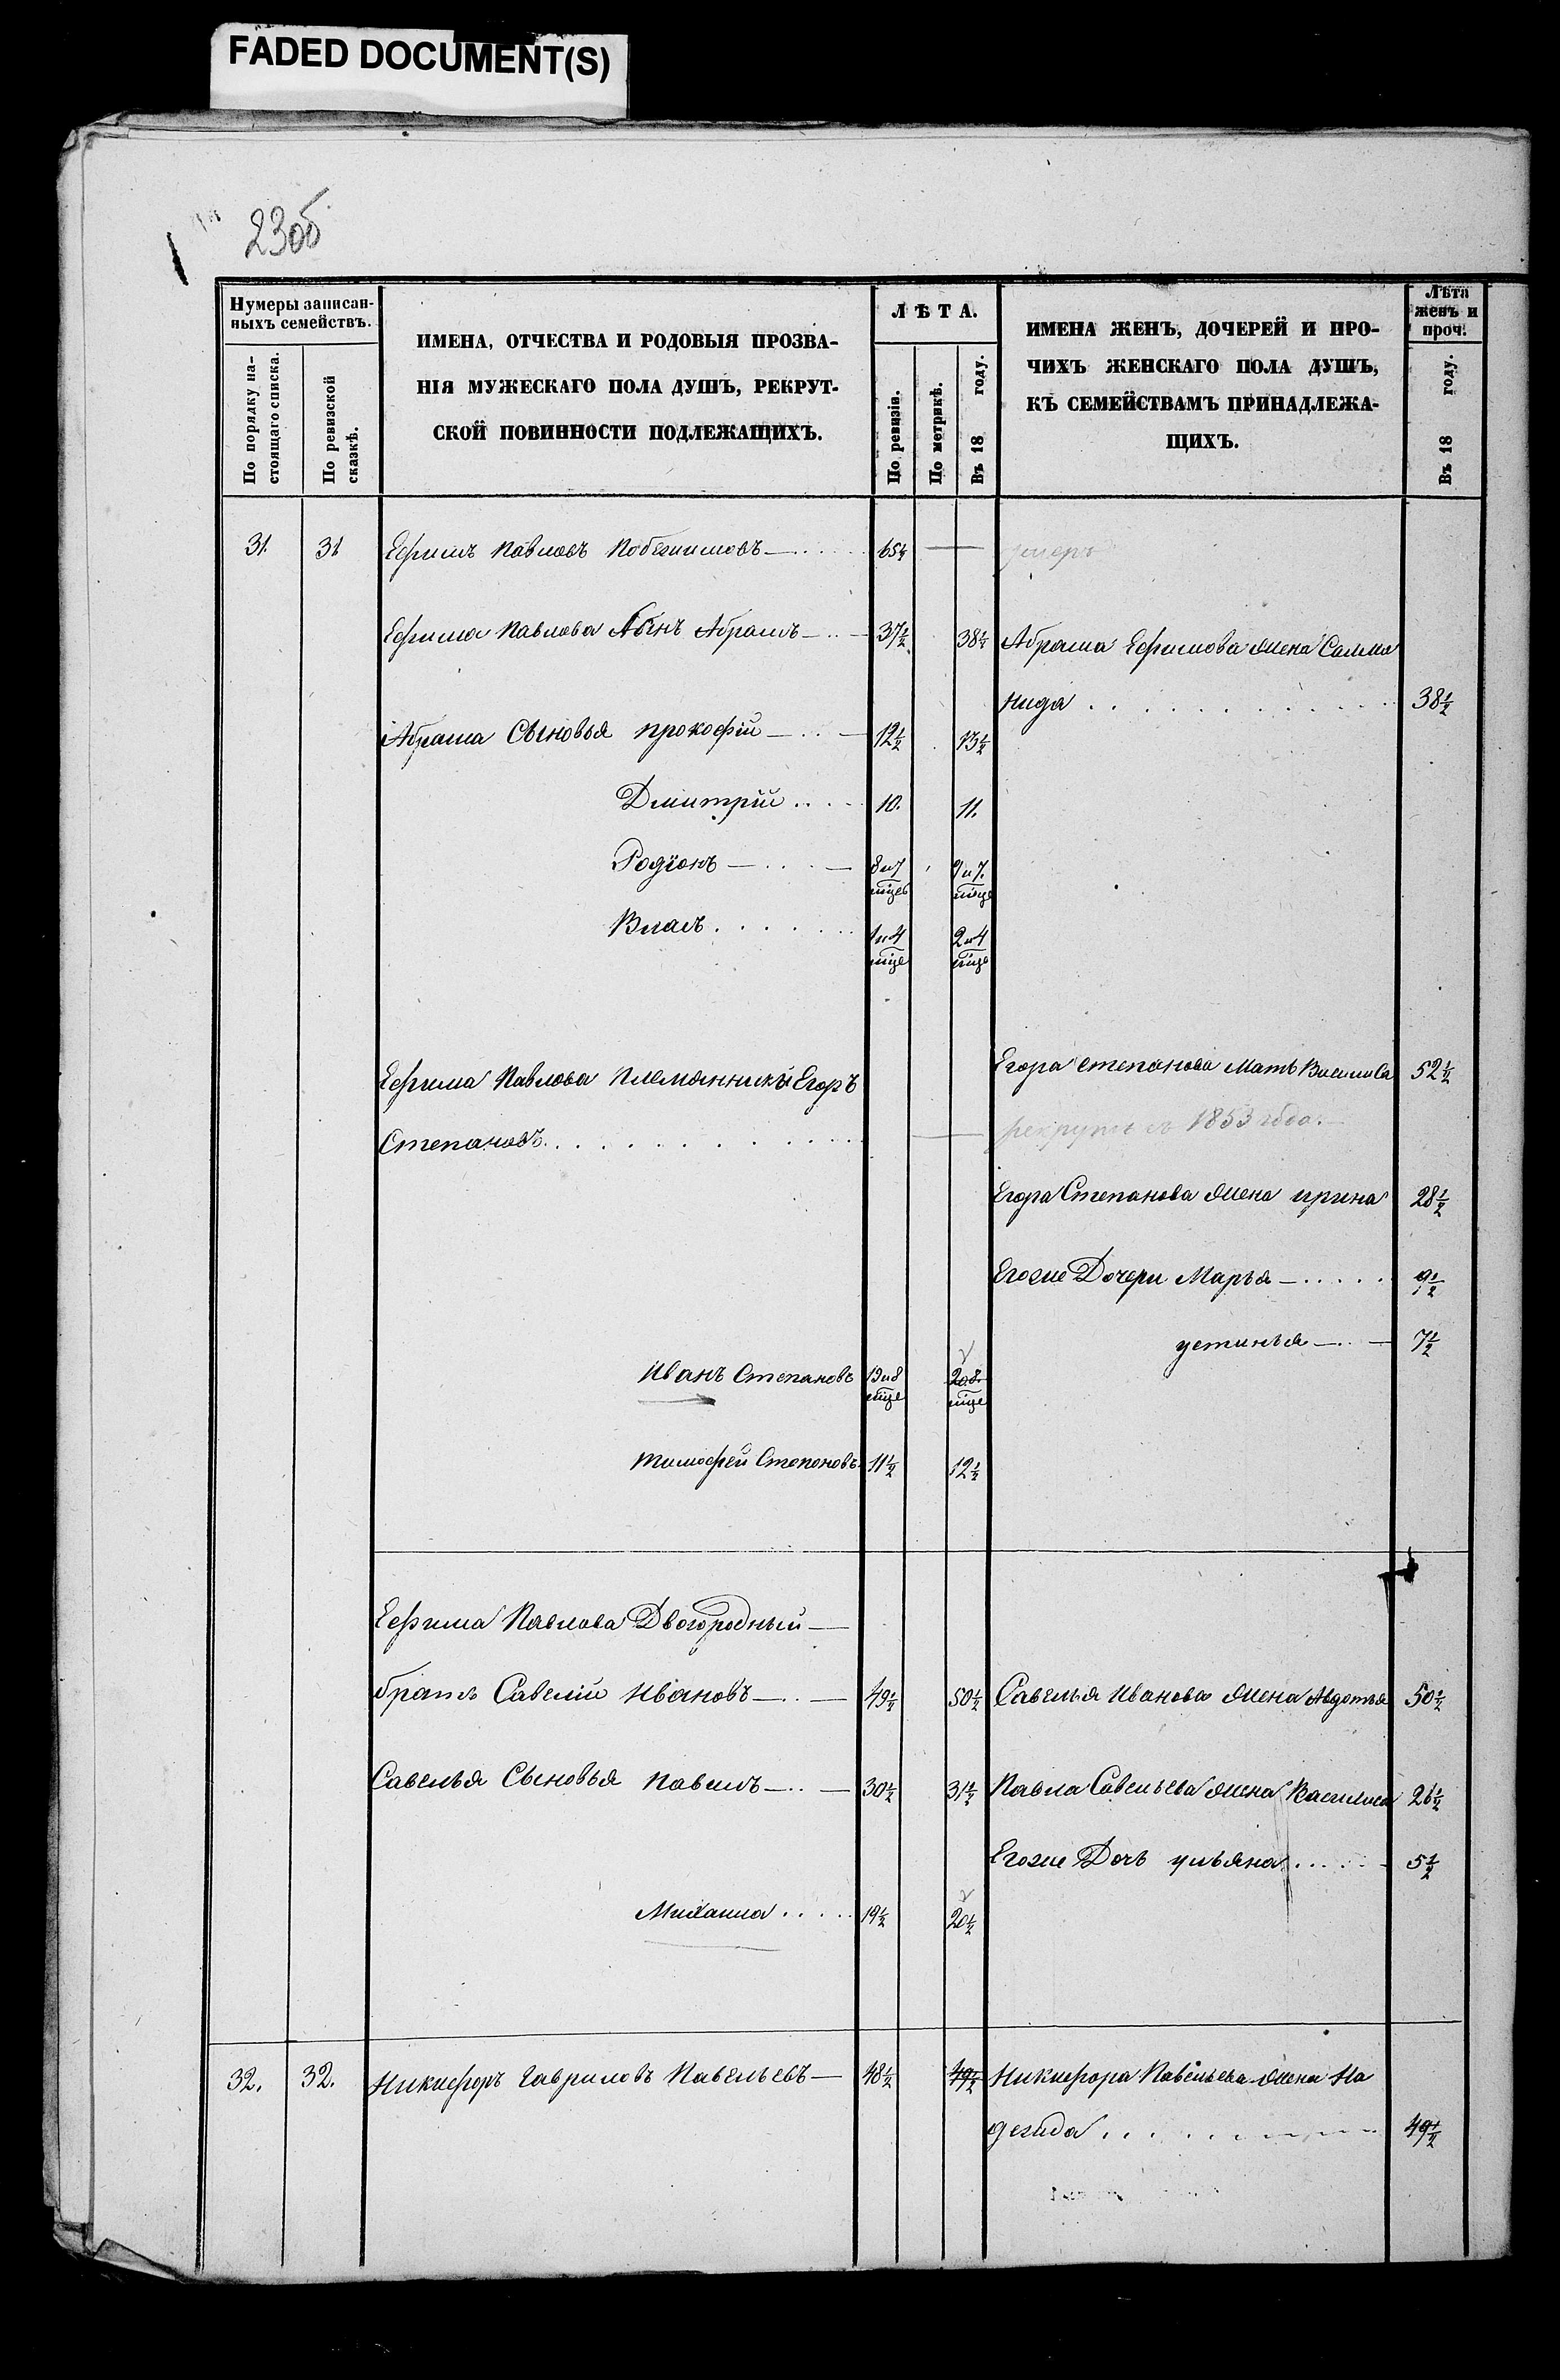 FADED DOCUMENT(S)
23об
Нумеры записан-
ныхъ семействъ.
По порядку на-
стоящаго списка.
По ревизской
сказкѣ.
ИМЕНА, ОТЧЕСТВА И РОДОВЫЯ ПРОЗВА-
НІЯ МУЖЕСКАГО ПОЛА ДУШЪ, РЕКРУТ-
СКОЙ ПОВИННОСТИ ПОДЛЕЖАЩИХЪ.
ЛѢТА.
По ревизіи.
По метрикѣ.
Въ 18 году.
ИМЕНА ЖЕНЪ, ДОЧЕРЕЙ И ПРО-
ЧИХЪ ЖЕНСКАГО ПОЛА ДУШЪ,
КЪ СЕМЕЙСТВАМЪ ПРИНАДЛЕЖА-
ЩИХЪ.
Лѣта
женъ и
проч.
Въ 18 году.
31. 31 Ефимъ Павловъ — 65½ — умеръ
Ефима Павлова Сынъ Абрамъ — 37½ 38½ Абрама Ефимова жена Сомма
нида 38½
Абрама Сыновья прокофій — 12½ 13½
Дмитрій 10. 11.
Родіонъ — 8и7 мцев 9и7. мцв
Власъ 1и4 мце 2и4 мце
Ефима Павлова племянники Егоръ Егора степанова Мать Василиса 52½
Степановъ — рекрутъ съ 1853 года.
Егора Степанова жена ирина 28½
Егоже Дочери Марья — 9½
устинья — 7½
Иванъ Степановъ 19и8 мце 20.8. мце
тимофей Степоновъ 11½ 12½
Ефима Павлова Двогородный —
братъ Савелій Ивановъ — 49½ 50½ Савелья Иванова жена Авдотья 50½
Савелья Сыновья Павелъ — 30½ 31½ Павла Савельева жена Василиса 26½
Егоже Дочь ульяна 5½
Михаила 19½ 20½
32. 32. Никифоръ Гавриловъ Павельевъ — 48½ 49½ Никифора Павельева жена На
дежда 49½